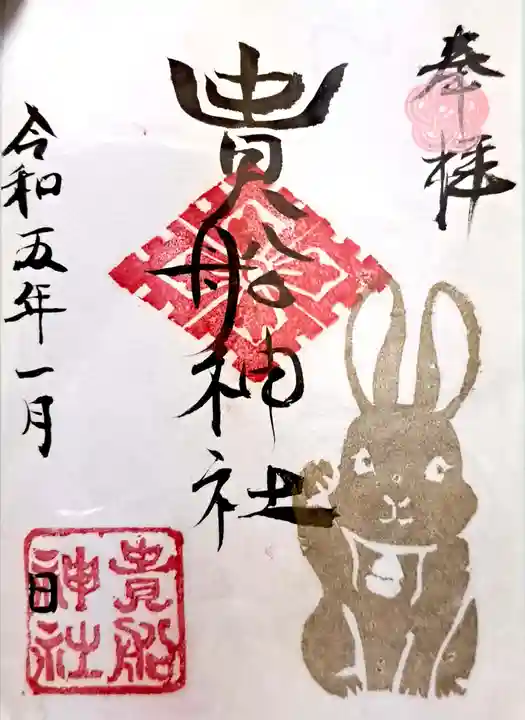 奉拝
貴船神社
令和五年一月
日
貴船
神社